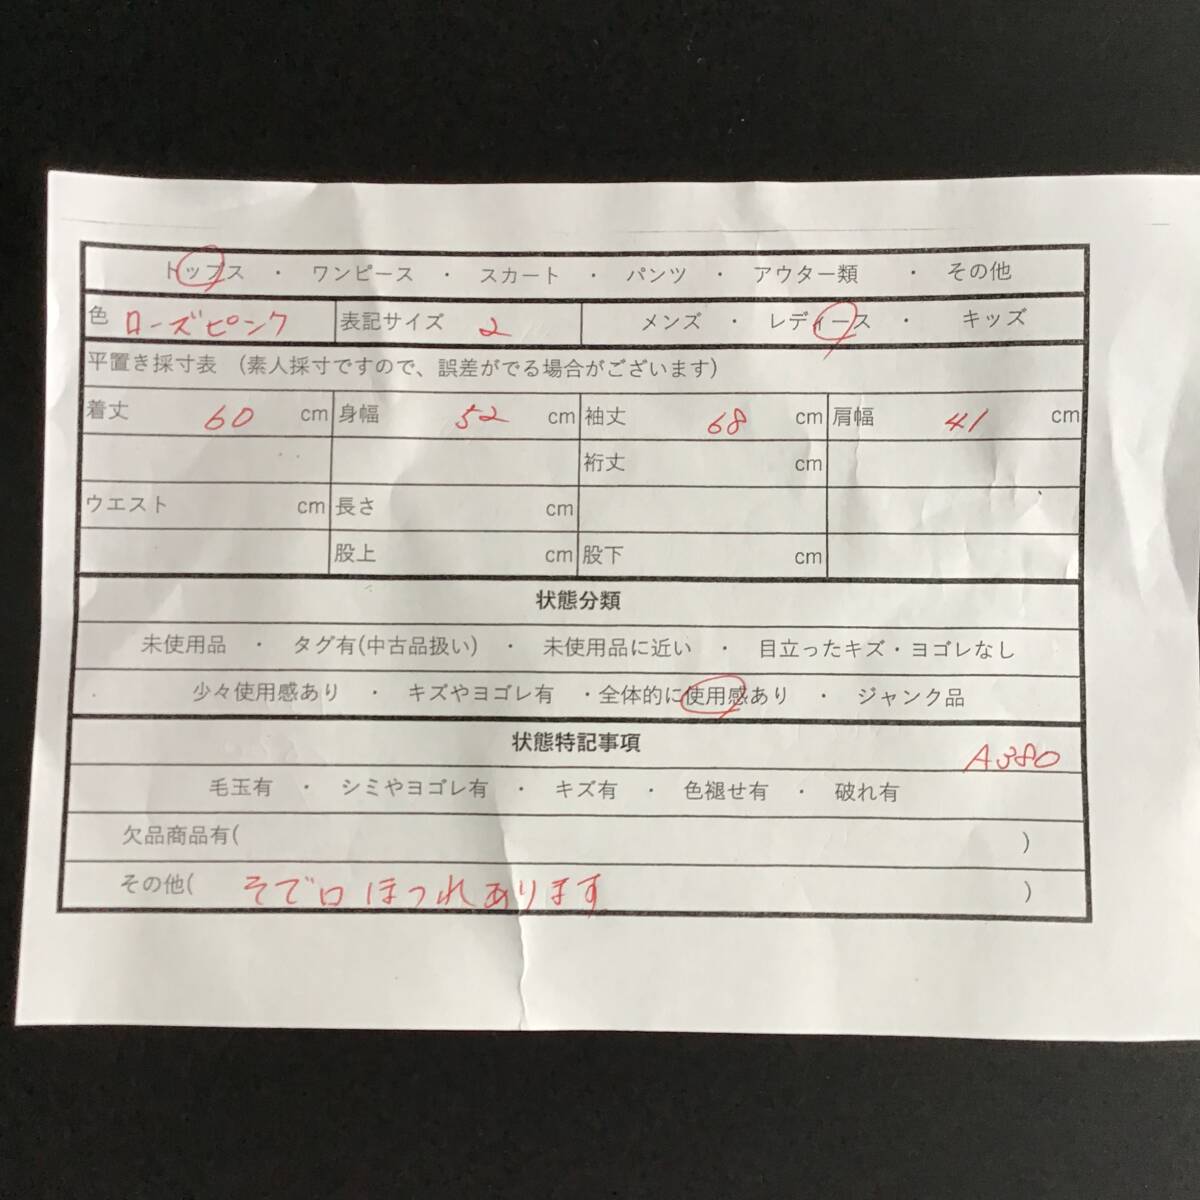 トップス ・ ワンピース ・ スカート ・ パンツ ・ アウター類 ・ その他
色 ローズピンク 表記サイズ 2 メンズ ・ レディース ・ キッズ
平置き採寸表 （素人採寸ですので、誤差がでる場合がございます）
着丈 60 cm 身幅 52 cm 袖丈 68 cm 肩幅 41 cm
裄丈 cm
ウエスト cm 長さ cm
股上 cm 股下 cm
状態分類
未使用品 ・ タグ有(中古品扱い) ・ 未使用品に近い ・ 目立ったキズ・ヨゴレなし
少々使用感あり ・ キズやヨゴレ有 ・全体的に使用感あり ・ ジャンク品
状態特記事項
A380
毛玉有 ・ シミやヨゴレ有 ・ キズ有 ・ 色褪せ有 ・ 破れ有
欠品商品有( )
その他( そで口 ほつれあります )